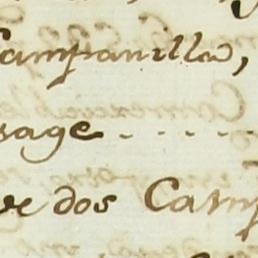 Campanilla,
sage - - - - -
ve dos Camp